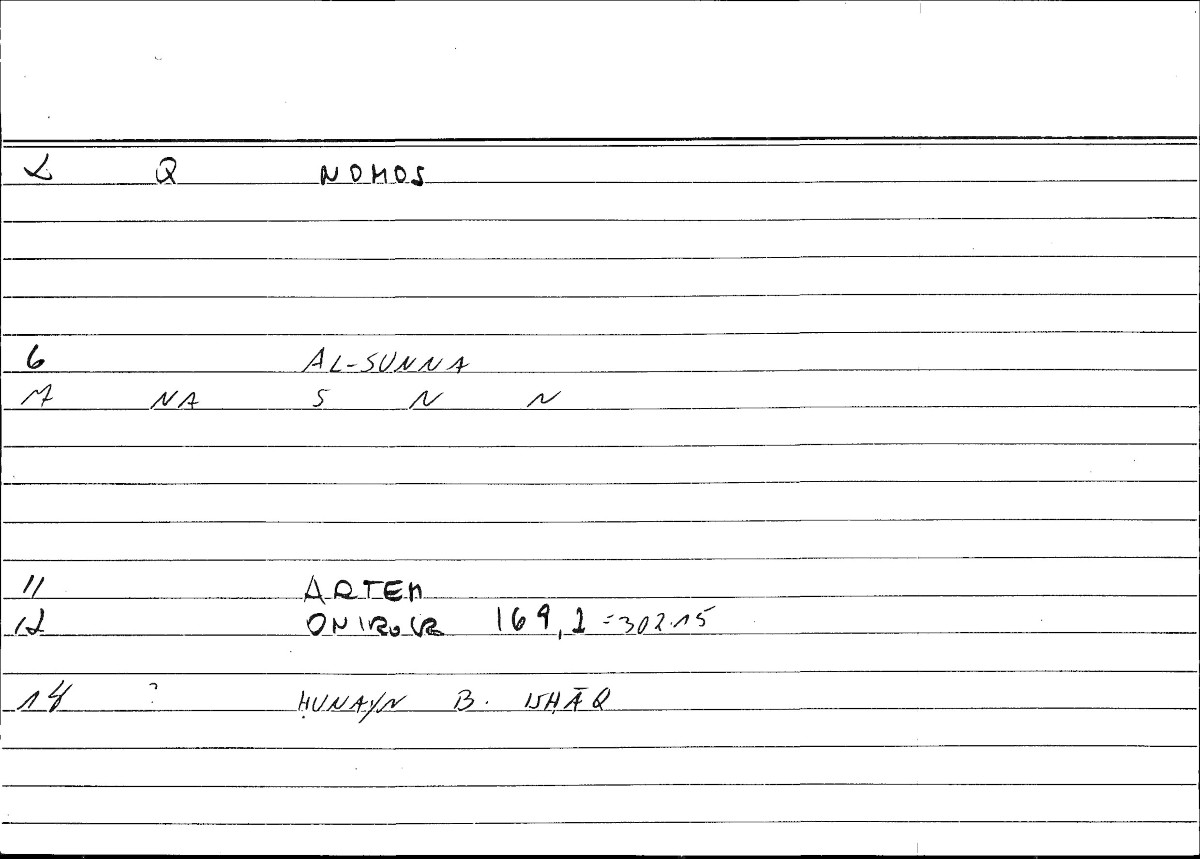 2 Q NOMOS
6 AL-SUNNA
7 NA S N N
11 ARTEM
12 ONIROCR 169,1 =302.15
14 ? ḤUNAYN B. ISHĀQ